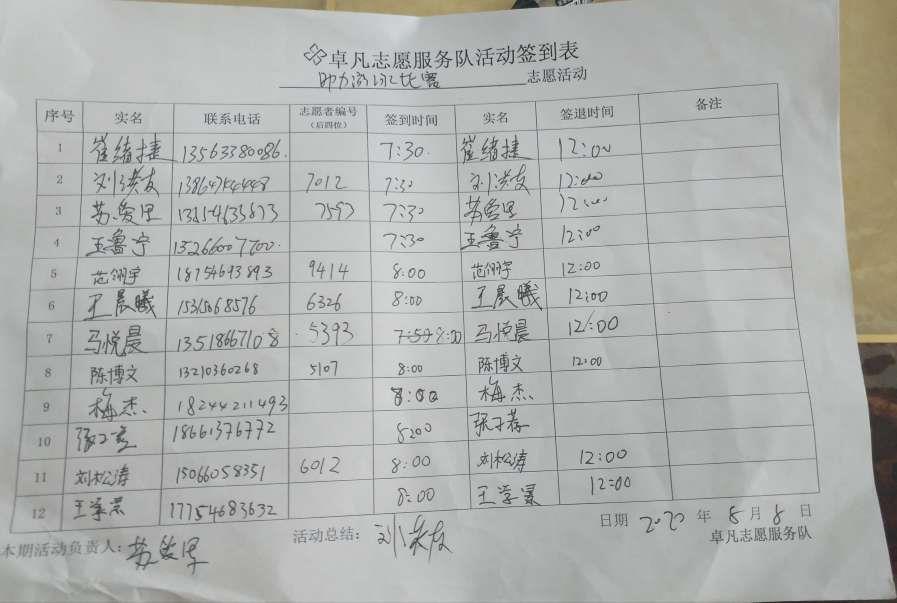 卓凡志愿服务队活动签到表
助力游泳比赛 志愿活动
序号 实名 联系电话 志愿者编号（后四位） 签到时间 实名 签退时间 备注
1 崔绪捷 13563380086. 7:30. 崔绪捷 12:00
2 刘洪友 7012 7:30 刘洪友 12:00
3 苏爱里 7593 7:30 苏爱里 12:00
4 王鲁宁 13266007700. 7:30 王鲁宁 12:00
5 范翎宇 18754693893 9414 8:00 范翎宇 12:00
6 王晨曦 15315068576 6326 8:00 王晨曦 12:00
7 马悦晨 13518667108 5393 7:57 8:00 马悦晨 12:00
8 陈博文 13210360268 5107 8:00 陈博文 12:00
9 梅杰 18244211493 8:00 梅杰
10 18661376772 8:00
11 刘松涛 15066058351 6012 8:00 刘松涛 12:00
12 17754683632 8:00 12:00
日期 2020 年 8 月 8 日
本期活动负责人: 苏爱里 活动总结: 刘洪友 卓凡志愿服务队